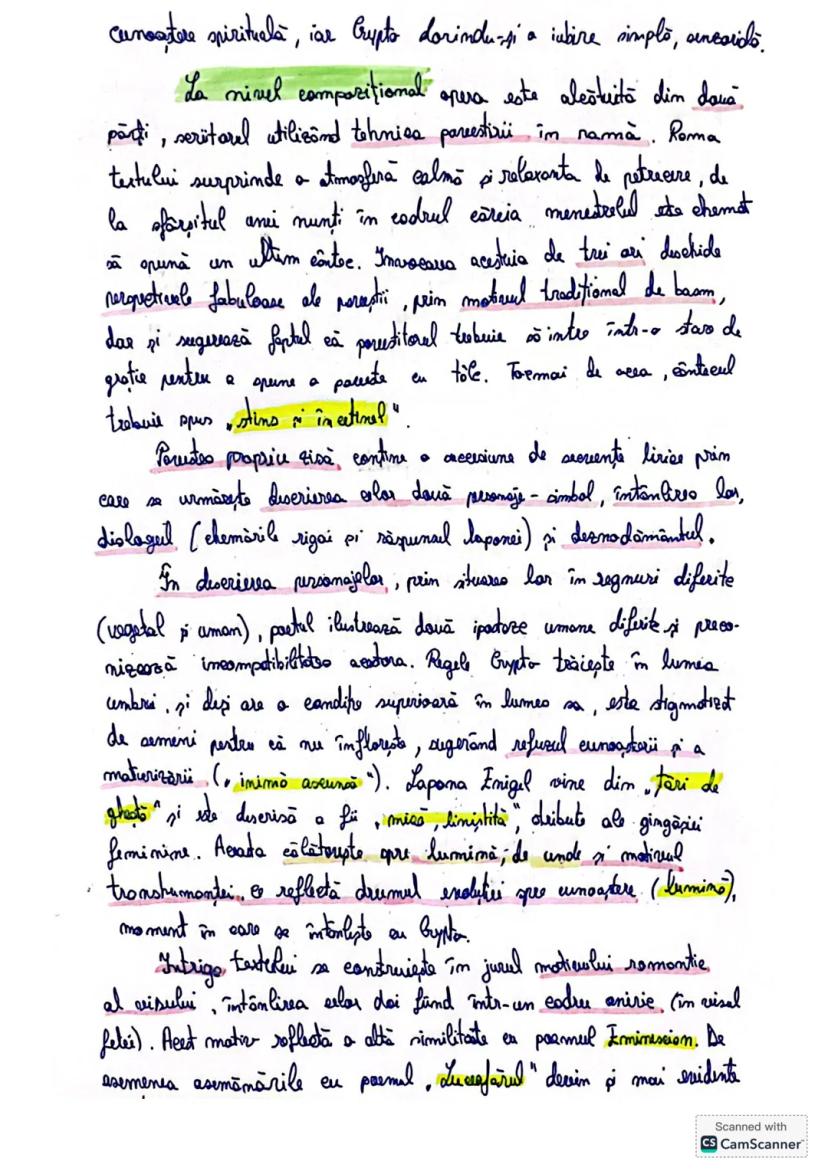 cunoaștere spirituală, iar Crypto dorindu-și o iubire simplă, omenească.
La nivel compozițional opera este alcătuită din două
părți, scriitorul utilizând tehnica povestirii în ramă. Rama
textului surprinde o atmosferă calmă și relaxantă de petrecere, de
la sfârșitul unei nunți în cadrul căreia menestrelul este chemat
să spună un ultim cântec. Invocarea acestuia de trei ori deschide
perspectivele fabuloase ale poveștii, prin motivul tradițional de basm,
dar și sugerează faptul că povestitorul trebuie să intre într-o stare de
grație pentru a spune o poveste cu tâlc. Tocmai de aceea, cântecul
trebuie spus „stins și încetinel".
Povestea propriu zisă conține o succesiune de secvențe lirice prin
care se urmărește descrierea celor două personaje-simbol, întâlnirea lor,
dialogul (chemările rigăi și răspunsul laponei) și deznodământul.
În descrierea personajelor, prin situarea lor în regnuri diferite
(vegetal și uman), poetul ilustrează două ipostaze umane diferite și preco-
nizează incompatibilitatea acestora. Regele Crypto trăiește în lumea
umbrei, și deși are o condiție superioară în lumea sa, este stigmatizat
de semeni pentru că nu înflorește, sugerând refuzul cunoașterii și a
maturizării („inimă ascunsă"). Lapona Enigel vine din „țări de
gheață" și este descrisă a fi „mică, liniștită", atribute ale gingășiei
feminine. Aceasta călătorește spre lumină, de unde și motivul
transhumanței, ce reflectă drumul evoluției spre cunoaștere (lumină),
moment în care se întâlnește cu Crypto.
Intriga textului se construiește în jurul motivului romantic
al visului, întâlnirea celor doi fiind într-un cadru oniric (în visul
fetei). Acest motiv reflectă o altă similitate cu poemul Eminescian. De
asemenea asemănările cu poemul „Luceafărul" devin și mai evidente
Scanned with
CS CamScanner